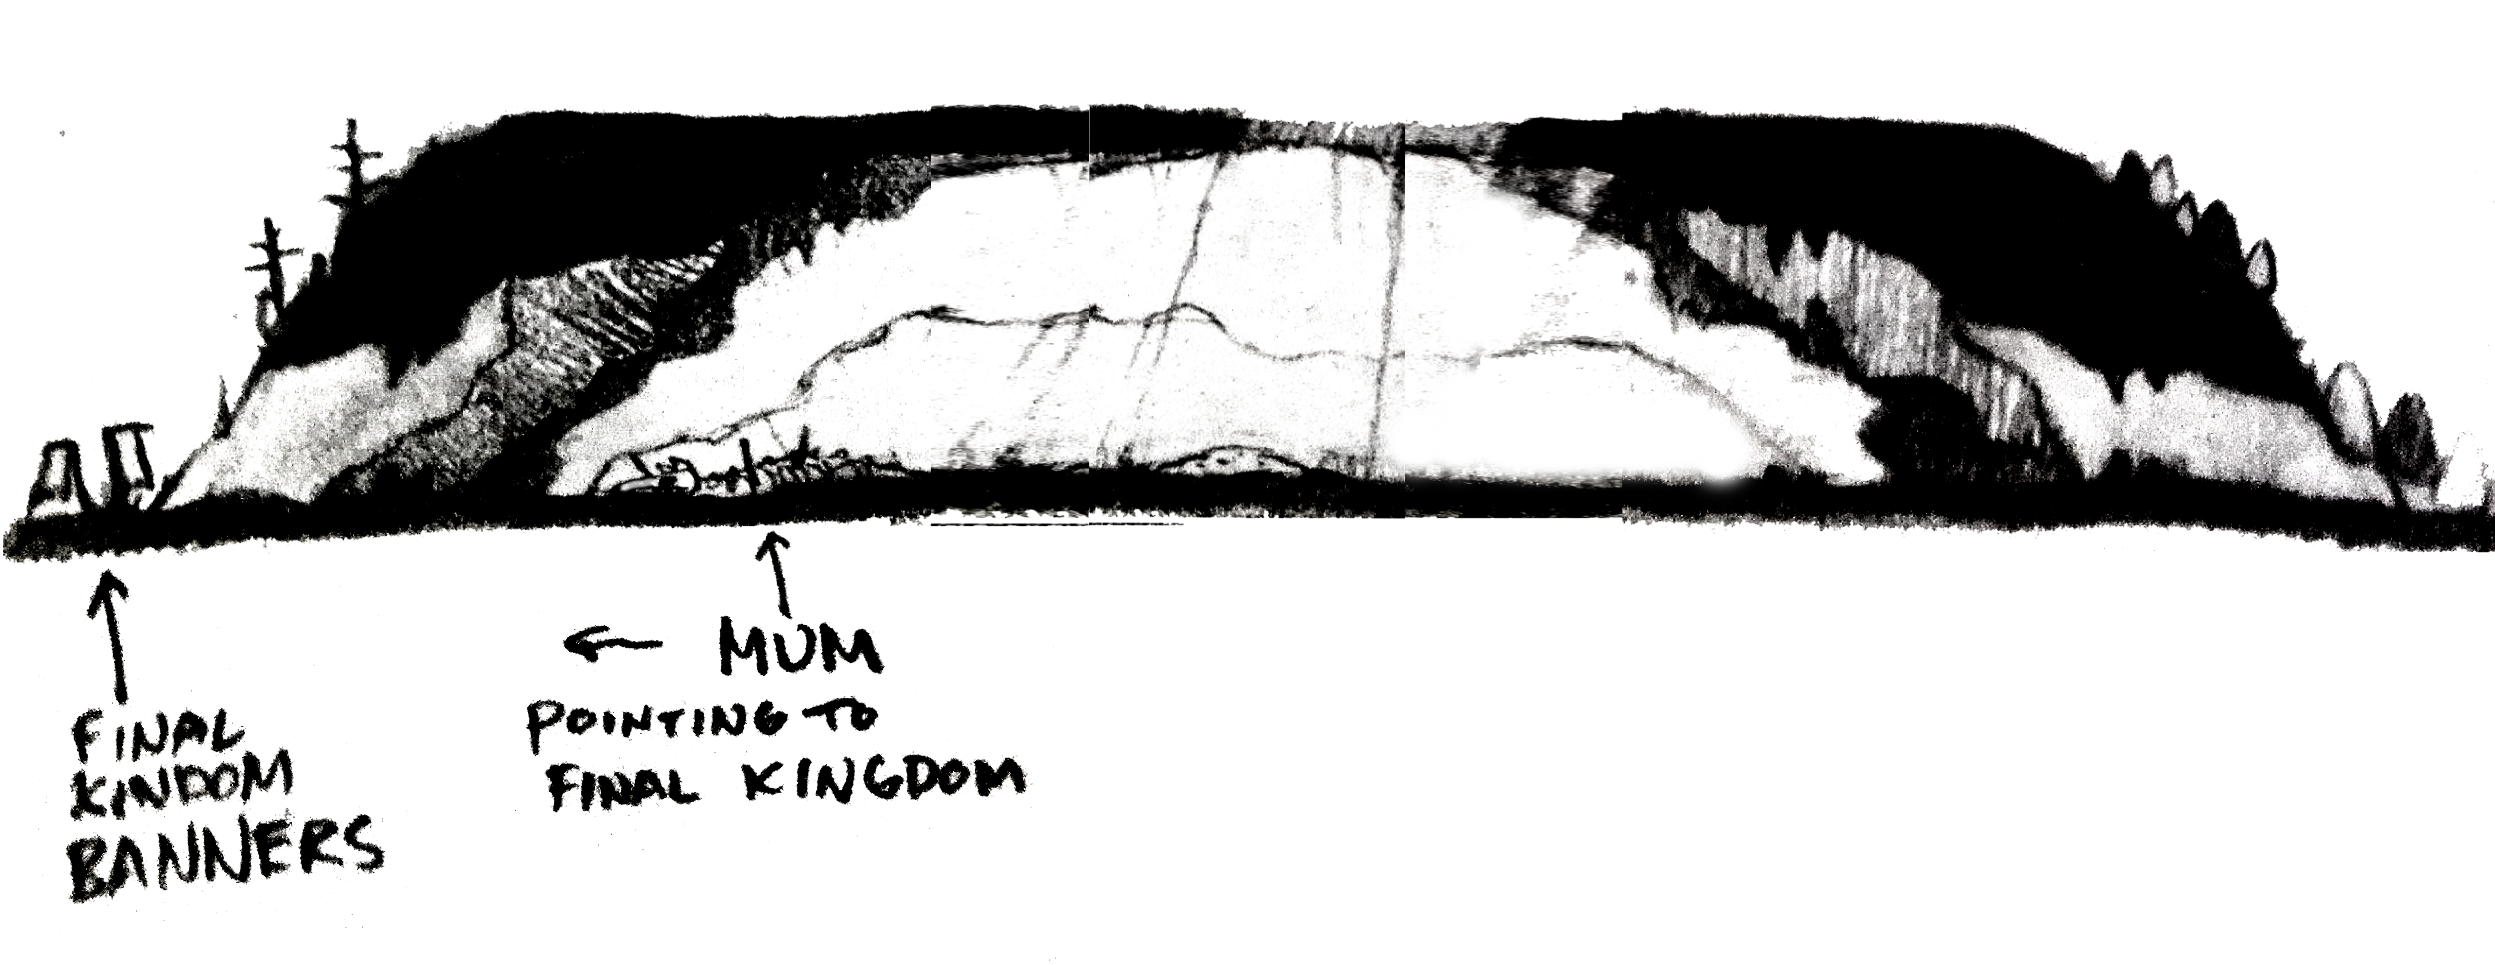 FINAL
KINDOM
BANNERS
← MUM
POINTING TO
FINAL KINGDOM